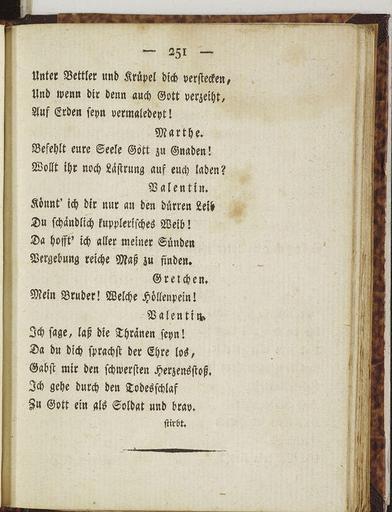 — 251 —
Unter Bettler und Krüpel dich verstecken,
Und wenn dir denn auch Gott verzeiht,
Auf Erden seyn vermaledeyt!
Marthe.
Befehlt eure Seele Gott zu Gnaden!
Wollt ihr noch Lästrung auf euch laden?
Valentin.
Könnt' ich dir nur an den dürren Leib
Du schändlich kupplerisches Weib!
Da hofft' ich aller meiner Sünden
Vergebung reiche Maß zu finden.
Gretchen.
Mein Bruder! Welche Höllenpein!
Valentin.
Ich sage, laß die Thränen seyn!
Da du dich sprachst der Ehre los,
Gabst mir den schwersten Herzensstoß.
Ich gehe durch den Todesschlaf
Zu Gott ein als Soldat und brav.
stirbt.